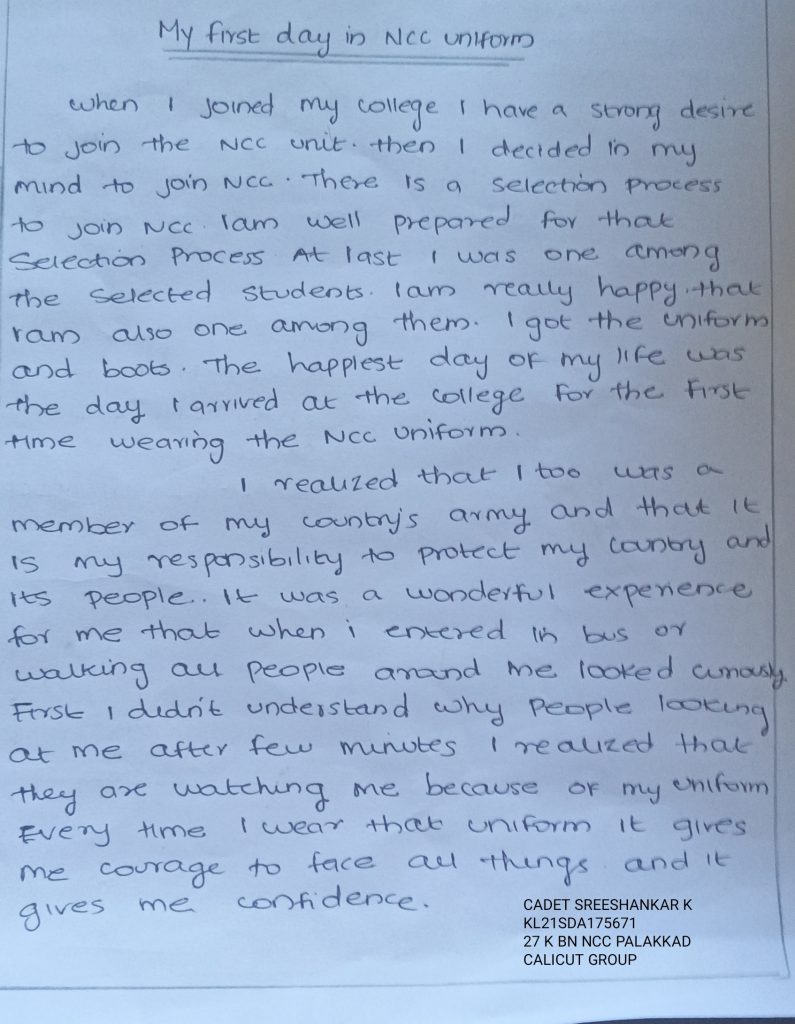 My first day in NCC uniform
When I joined my college I have a strong desire
to join the NCC unit. then I decided in my
mind to join NCC. There is a selection process
to join NCC. Iam well prepared for that
Selection Process At last I was one among
the selected students. Iam really happy.that
Iam also one among them. I got the uniform
and boots. The happiest day of my life was
the day I arrived at the college for the first
time wearing the NCC uniform.
I realized that I too was a
member of my country's army and that it
is my responsibility to protect my country and
its people.. It was a wonderful experience
for me that when i entered in bus or
walking all people around me looked curiously.
First I didn't understand why people looking
at me after few minutes I realized that
they are watching me because of my uniform
Every time I wear that uniform it gives
me courage to face all things and it
gives me confidence.
CADET SREESHANKAR K
KL21SDA175671
27 K BN NCC PALAKKAD
CALICUT GROUP